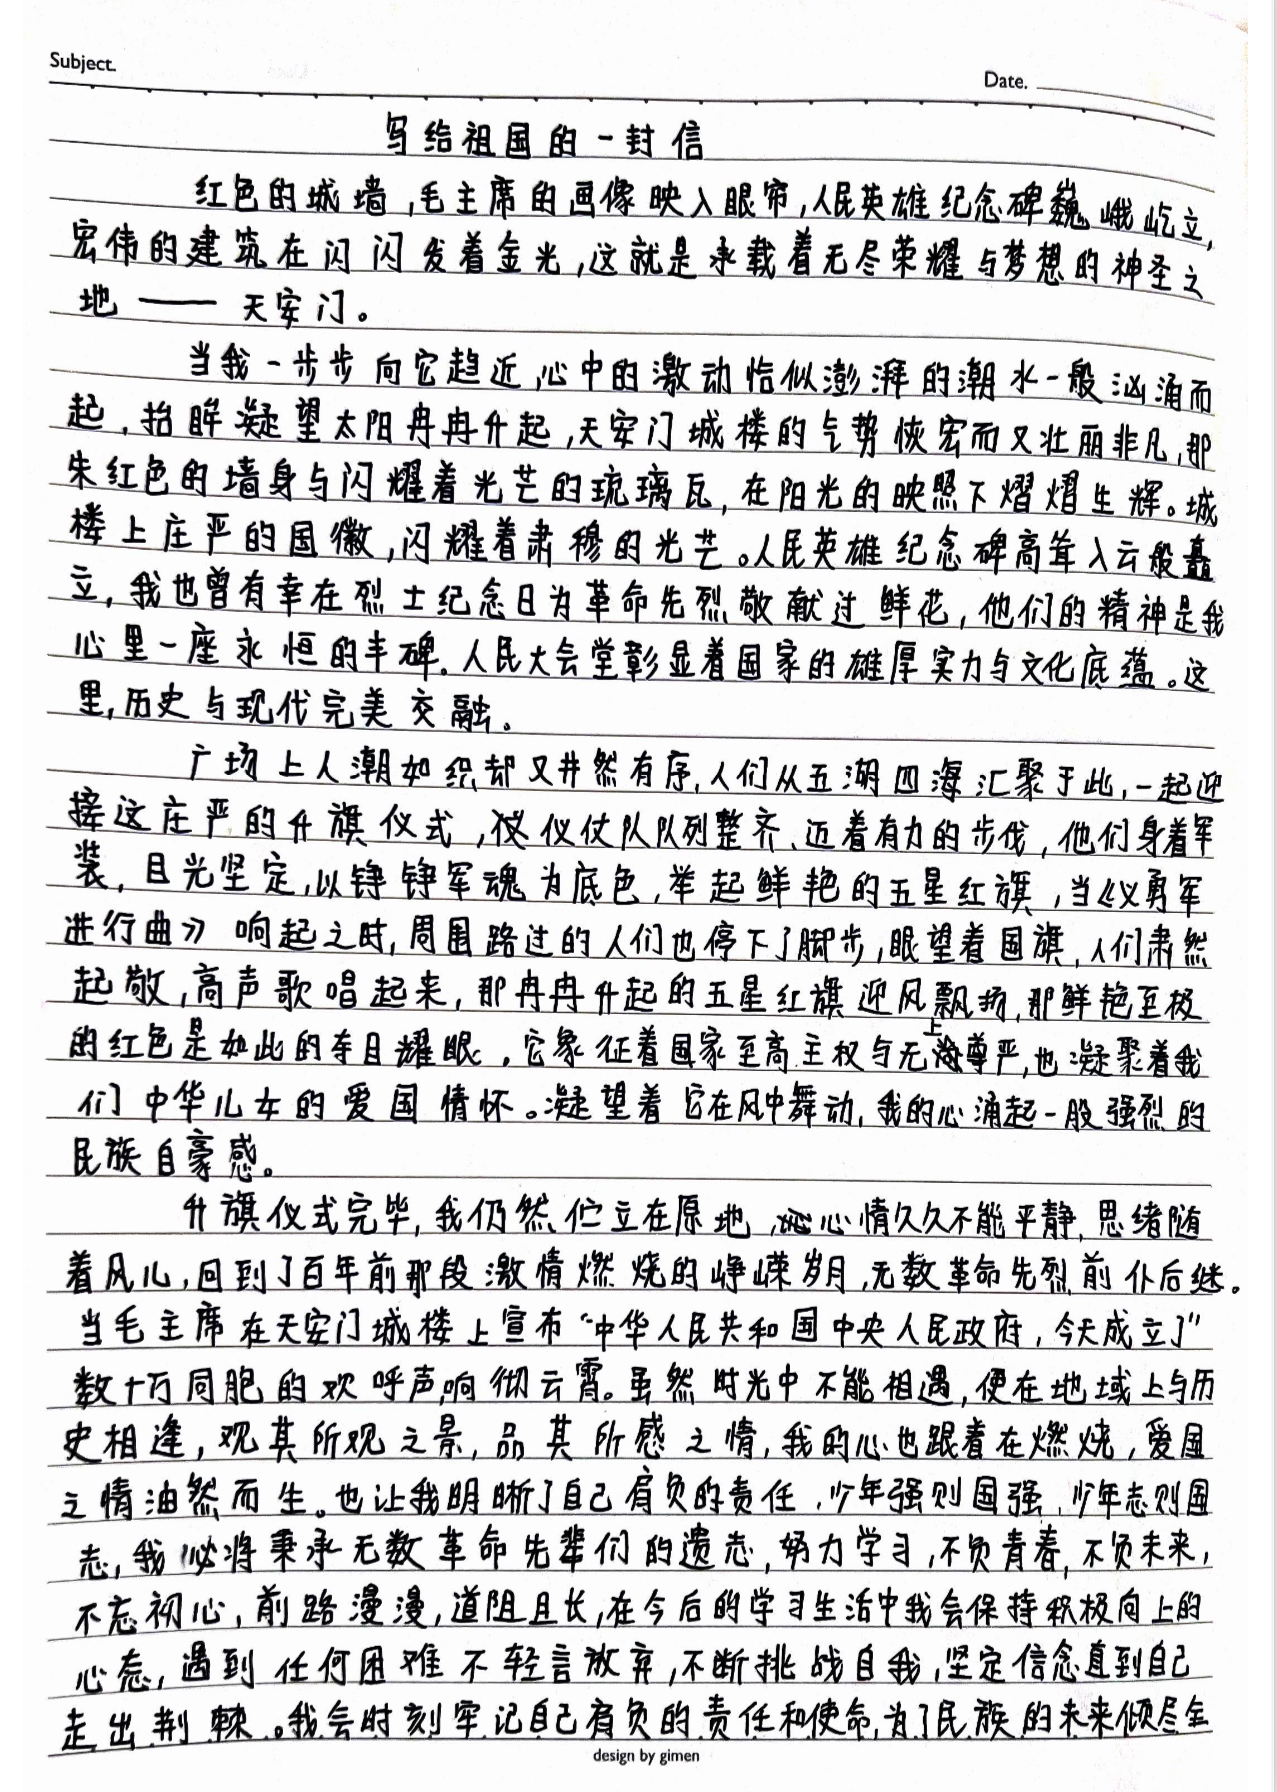 Subject.
Date.
写给祖国的一封信
红色的城墙,毛主席的画像映入眼帘,人民英雄纪念碑巍峨屹立,
宏伟的建筑在闪闪发着金光,这就是承载着无尽荣耀与梦想的神圣之
地——天安门。
当我一步步向它趋近,心中的激动恰似澎湃的潮水一般汹涌而
起,抬眸凝望太阳冉冉升起,天安门城楼的气势恢宏而又壮丽非凡,那
朱红色的墙身与闪耀着光芒的琉璃瓦,在阳光的映照下熠熠生辉。城
楼上庄严的国徽,闪耀着肃穆的光芒。人民英雄纪念碑高耸入云般矗
立,我也曾有幸在烈士纪念日为革命先烈敬献过鲜花,他们的精神是我
心里一座永恒的丰碑。人民大会堂彰显着国家的雄厚实力与文化底蕴。这
里,历史与现代完美交融。
广场上人潮如织却又井然有序,人们从五湖四海汇聚于此,一起迎
接这庄严的升旗仪式,仪仗队队列整齐、迈着有力的步伐,他们身着军
装,目光坚定,以铮铮军魂为底色,举起鲜艳的五星红旗,当《义勇军
进行曲》响起之时,周围路过的人们也停下了脚步,眼望着国旗,人们肃然
起敬,高声歌唱起来,那冉冉升起的五星红旗迎风飘扬,那鲜艳至极
的红色是如此的夺目耀眼,它象征着国家至高主权与无上尊严,也凝聚着我
们中华儿女的爱国情怀。凝望着它在风中舞动,我的心涌起一股强烈的
民族自豪感。
升旗仪式完毕,我仍然伫立在原地,心情久久不能平静,思绪随
着风儿,回到了百年前那段激情燃烧的峥嵘岁月,无数革命先烈前仆后继。
当毛主席在天安门城楼上宣布“中华人民共和国中央人民政府,今天成立了”
数十万同胞的欢呼声,响彻云霄。虽然时光中不能相遇,便在地域上与历
史相逢,观其所观之景,品其所感之情,我的心也跟着在燃烧,爱国
之情油然而生。也让我明晰了自己肩负的责任,少年强则国强,少年志则国
志,我必将秉承无数革命先辈们的遗志,努力学习,不负青春,不负未来,
不忘初心,前路漫漫,道阻且长,在今后的学习生活中我会保持积极向上的
心态,遇到任何困难不轻言放弃,不断挑战自我,坚定信念直到自己
走出荆棘。我会时刻牢记自己肩负的责任和使命,为了民族的未来倾尽全
design by gimen